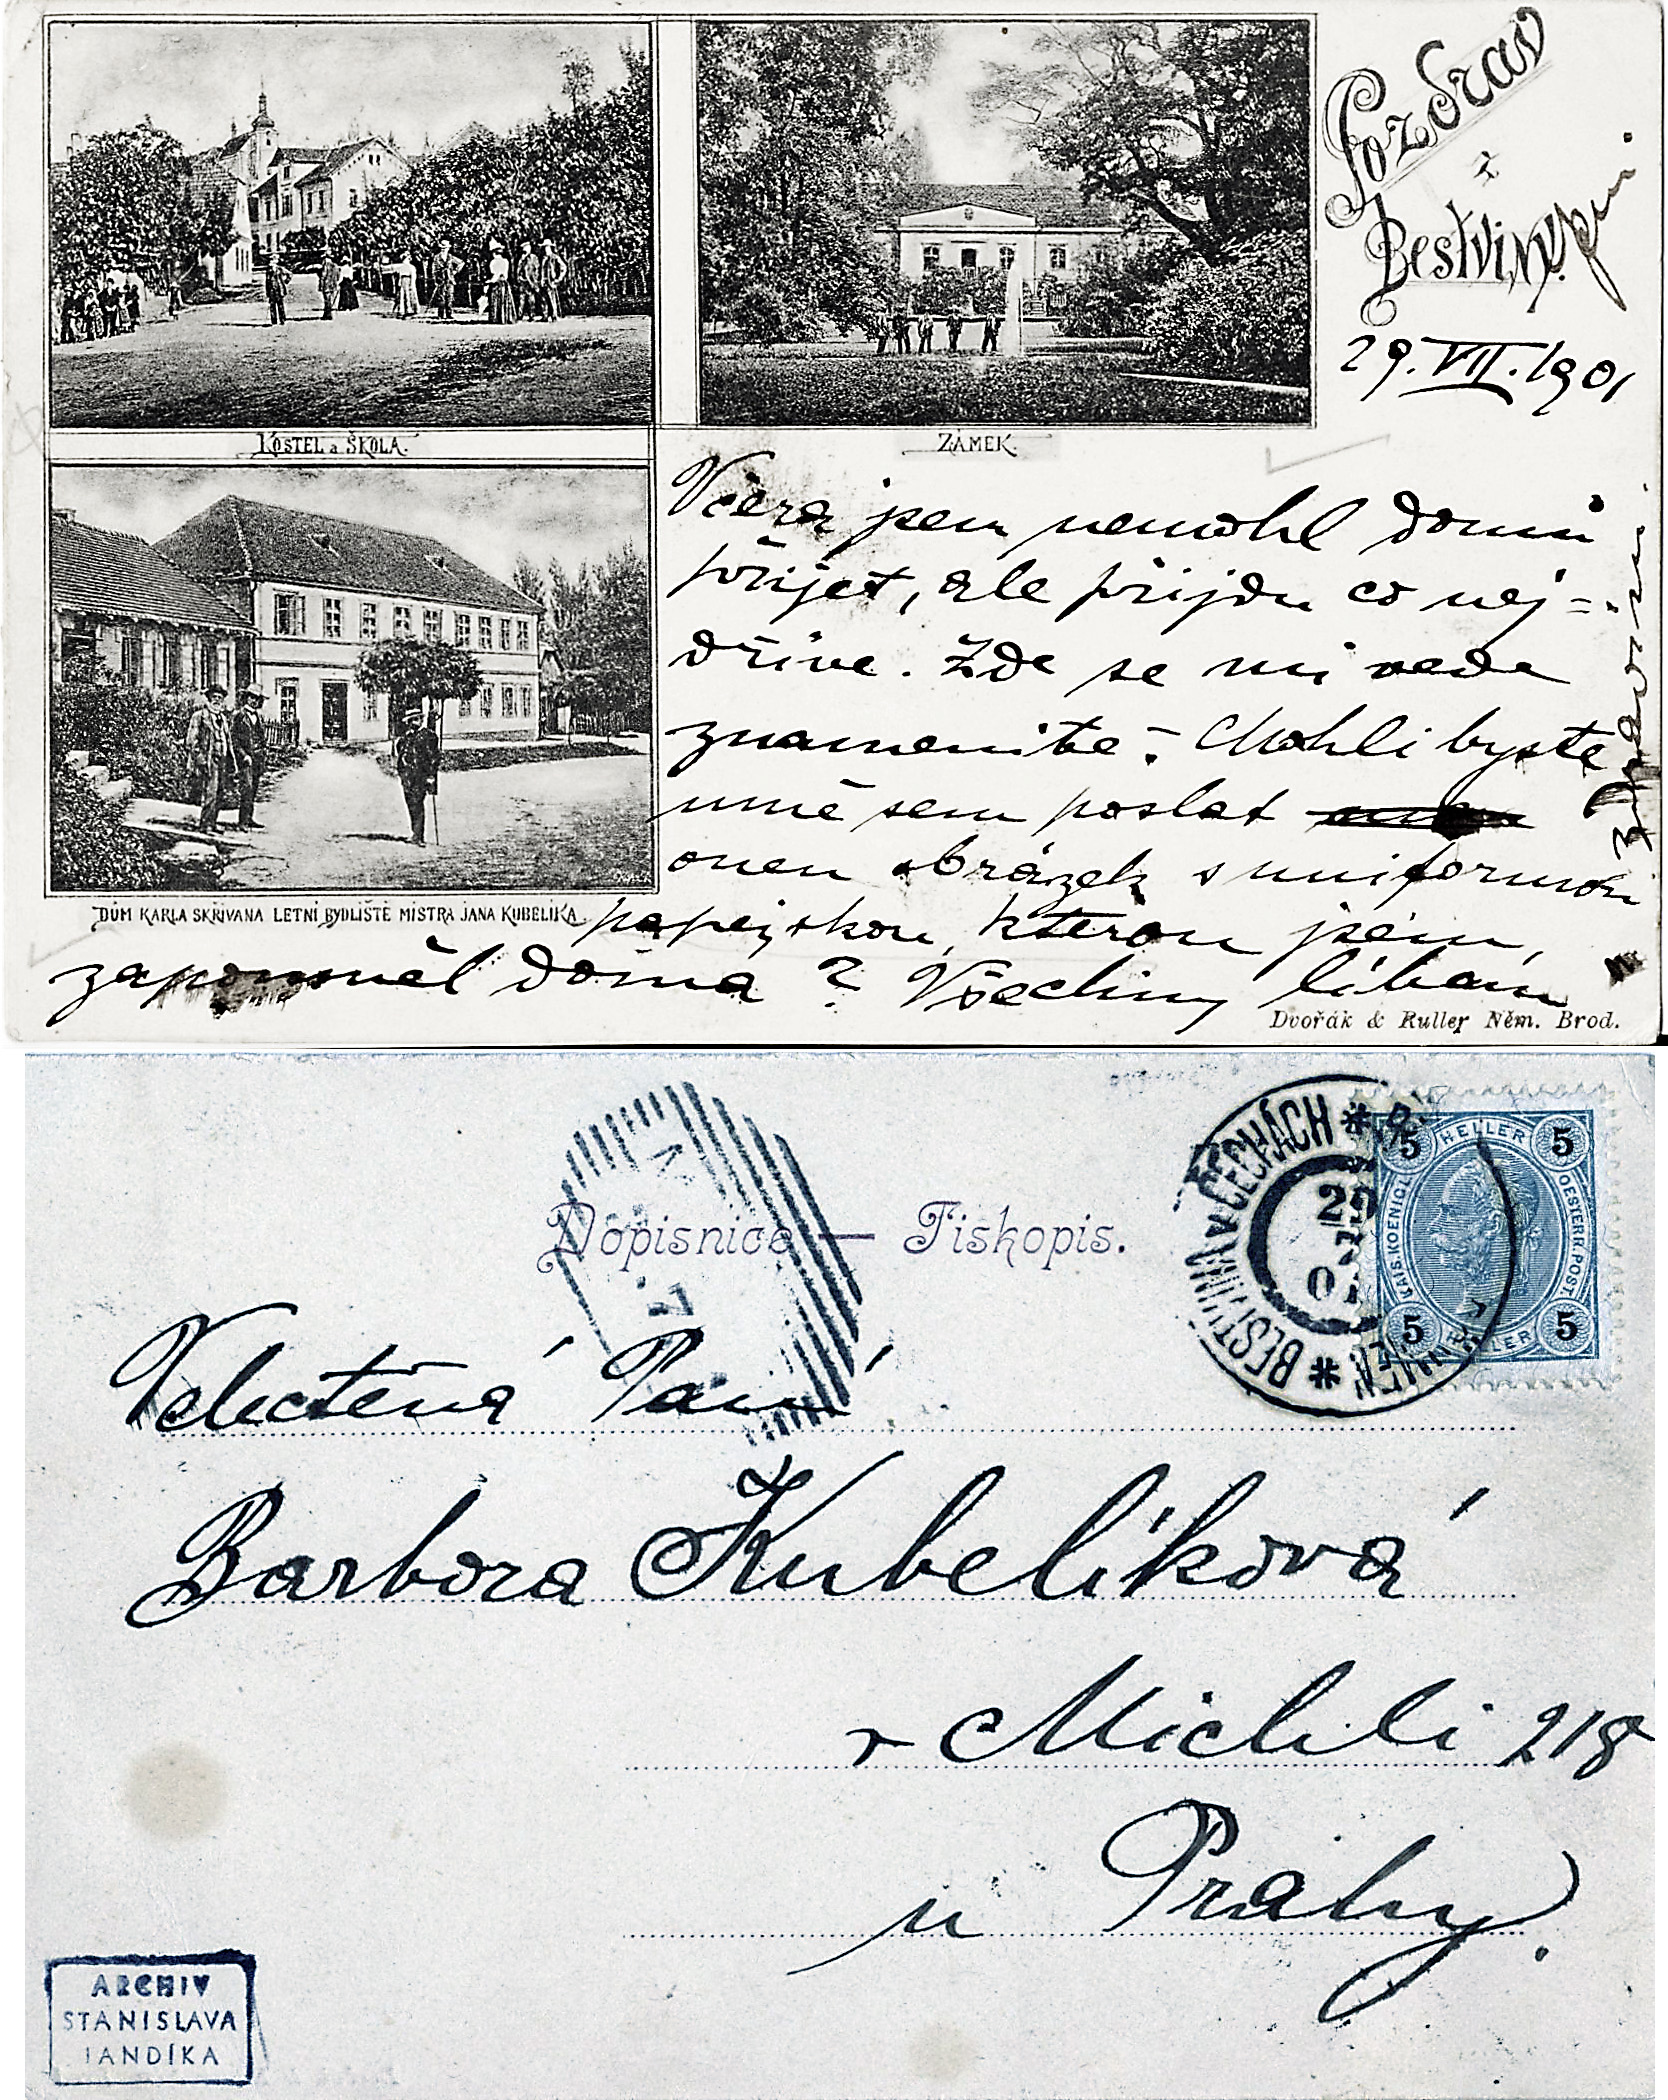 Pozdrav
z
Bestviny.
29. VII. 1901
KOSTEL a ŠKOLA.
ZÁMEK.
DŮM KARLA SKŘIVANA LETNÍ BYDLIŠTĚ MISTRA JANA KUBELÍKA.
Včera jsem nemohl domů
přijet, ale přijdu co nej=
dříve. Zde se mi vede
znamenitě. Mohli byste
mně sem poslat
onen obrázek s uniformou
papežskou, kterou jsem
zapomněl doma? Všechny líbám
Dvořák & Ruller Něm. Brod.
Dopisnice — Tiskopis.
BESTVINA v ČECHÁCH
5 HELLER 5
KAIS. KOENIGL.
OESTERR. POST
5 HELLER 5
Velectěná Paní
Barbora Kubelíková
v Michli 218
u Prahy.
ARCHIV
STANISLAVA
JANDÍKA